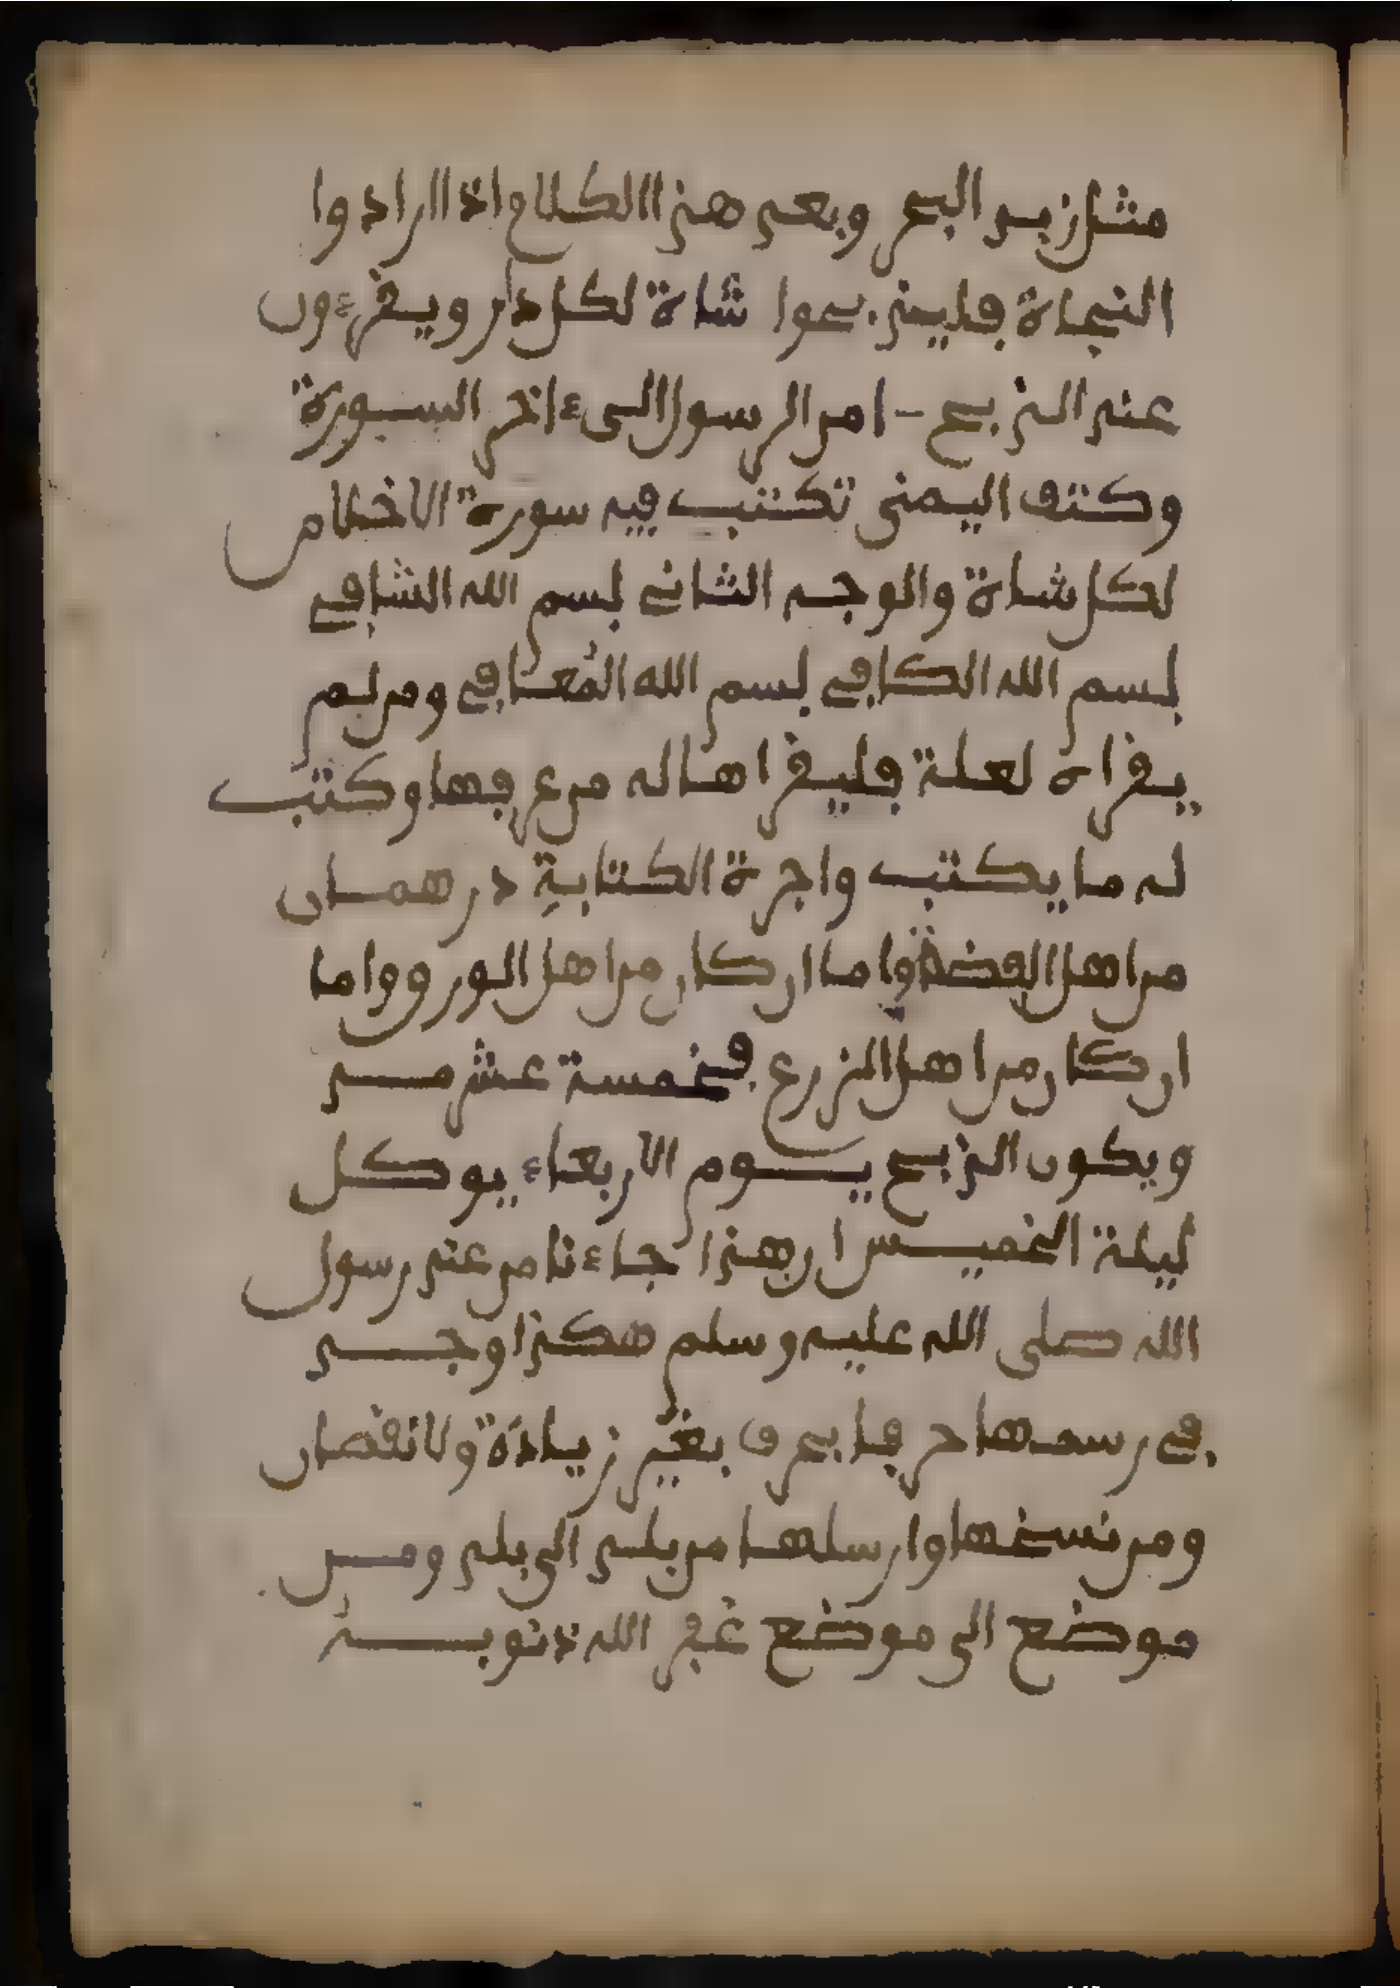 مثل زبد البحر وبعد هذا الكلام اذا ارادوا
النجاة فليذبحوا شاة لكل دار ويقرءون
عند الذبح - امن الرسول الى ءاخر السورة
وكتف اليمنى تكتب فيه سورة الاخلاص
لكل شاة والوجه الثاني بسم الله الشافي
بسم الله الكافي بسم الله المُعافي ومن لم
يقراه لعلة فليقراها له من عرفها وكتب
له ما يكتب واجرة الكتابة درهمان
من اهل الفضة واما ان كان من اهل الورق واما
ان كان من اهل الزرع فخمسة عشر مد
ويكون الذبح يوم الاربعاء يوكل
ليلة الخميس ان هذا جاءنا من عند رسول
الله صلى الله عليه وسلم هكذا وجد
في رسمها حرفا بحرف بغير زيادة ولا نقصان
ومن نسخها وارسلها من بلد الى بلد ومن
موضع الى موضع غفر الله ذنوبه